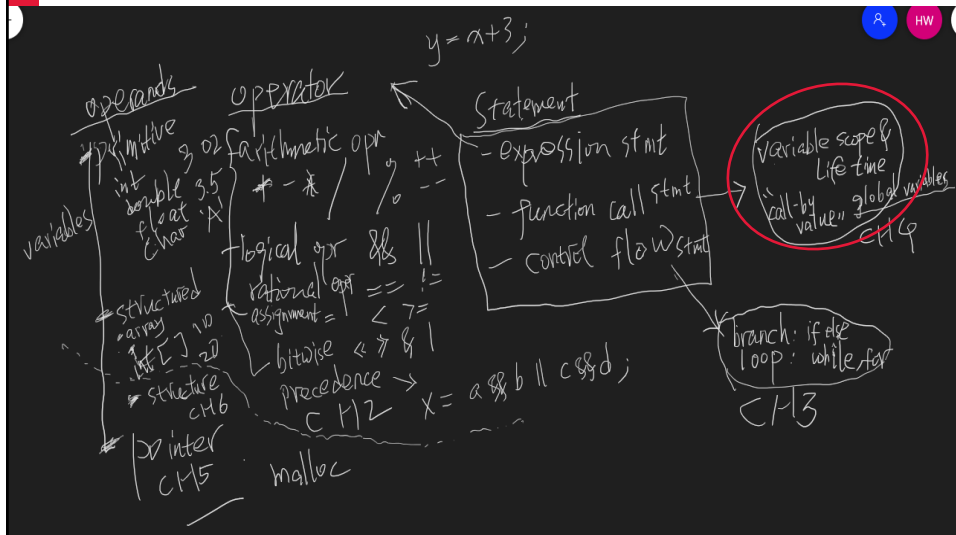 HW
y = x+3;
operands
primitive
int 3, 02
double 3.5
float
char 'A'
variables
structured
array
int [ ] 1D
2D
structure
CH6
pointer
CH5
malloc
operator
arithmetic opr
+ - * / % ++
--
logical opr && ||
rational opr == !=
assignment = < >=
bitwise << >> & |
precedence →
CH2
x = a && b || c && d ;
Statement
- expression stmt
- function call stmt
- control flow stmt
variable scope &
Life time
"call-by
value"
global variables
CH4
branch: if else
loop: while, for
CH3